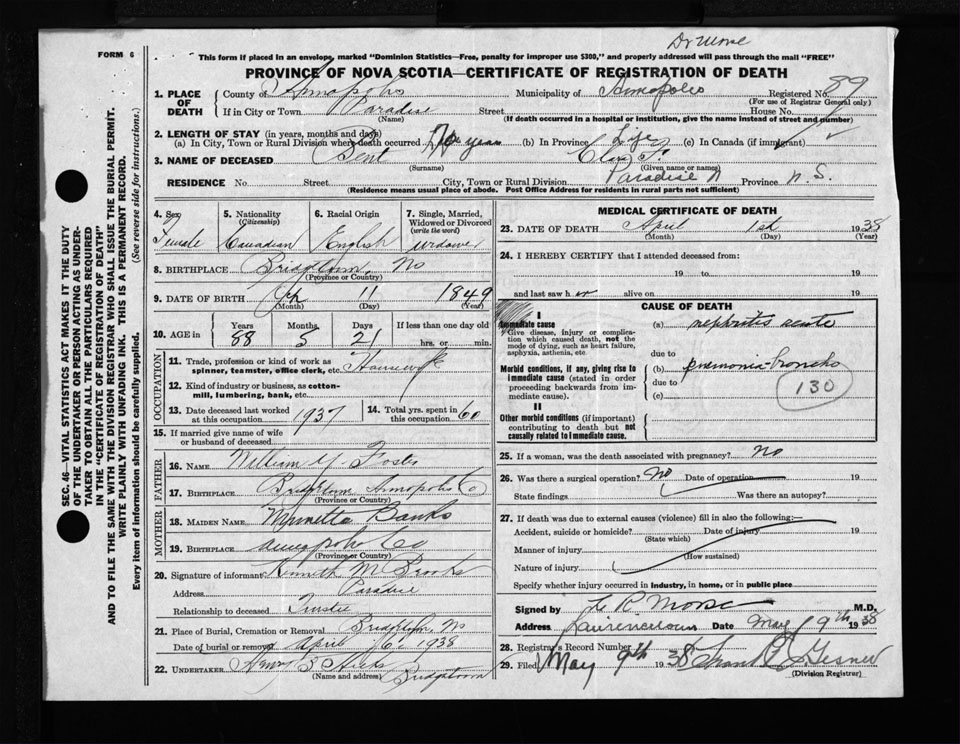 Dr Morse
FORM 6
This form if placed in an envelope, marked "Dominion Statistics—Free, penalty for improper use $300," and properly addressed will pass through the mail "FREE"
PROVINCE OF NOVA SCOTIA—CERTIFICATE OF REGISTRATION OF DEATH
SEC. 46—VITAL STATISTICS ACT MAKES IT THE DUTY
OF THE UNDERTAKER OR PERSON ACTING AS UNDER-
TAKER TO OBTAIN ALL THE PARTICULARS REQUIRED
IN THE "CERTIFICATE OF REGISTRATION OF DEATH"
AND TO FILE THE SAME WITH THE DIVISION REGISTRAR WHO SHALL ISSUE THE BURIAL PERMIT.
WRITE PLAINLY WITH UNFADING INK. THIS IS A PERMANENT RECORD.
Every item of information should be carefully supplied. (See reverse side for instructions.)
1. PLACE OF DEATH County of Annapolis Municipality of Annapolis Registered No. 89
(For use of Registrar General only)
If in City or Town Paradise Street House No.
(Name) (If death occurred in a hospital or institution, give the name instead of street and number)
2. LENGTH OF STAY (in years, months and days)
(a) In City, Town or Rural Division where death occurred years (b) In Province Life (c) In Canada (if immigrant)
3. NAME OF DECEASED Bent Clara F.
(Surname) (Given name or names)
RESIDENCE No. Street City, Town or Rural Division Paradise Province N.S.
(Residence means usual place of abode. Post Office Address for residents in rural parts not sufficient)
4. Sex Female
5. Nationality (Citizenship) Canadian
6. Racial Origin English
7. Single, Married, Widowed or Divorced (write the word) widowed
8. BIRTHPLACE Bridgetown, NS
(Province or Country)
9. DATE OF BIRTH 11 1849
(Month) (Day) (Year)
10. AGE in Years 88 Months 5 Days 21 If less than one day old hrs. or min.
OCCUPATION
11. Trade, profession or kind of work as spinner, teamster, office clerk, etc. Housewife
12. Kind of industry or business, as cotton-mill, lumbering, bank, etc.
13. Date deceased last worked at this occupation 1937
14. Total yrs. spent in this occupation 60
15. If married give name of wife or husband of deceased
FATHER
16. NAME William Y. Foster
17. BIRTHPLACE Bridgetown Annapolis Co
(Province or Country)
MOTHER
18. MAIDEN NAME Banks
19. BIRTHPLACE Annapolis Co
(Province or Country)
20. Signature of informant Kenneth M Brooks
Address Paradise
Relationship to deceased Trustee
21. Place of Burial, Cremation or Removal Bridgetown, NS
Date of burial or removal April 1938
22. UNDERTAKER Henry B Hicks Bridgetown
(Name and address)
MEDICAL CERTIFICATE OF DEATH
23. DATE OF DEATH April 1st 1938
(Month) (Day) (Year)
24. I HEREBY CERTIFY that I attended deceased from:
19 to 19
and last saw h er alive on 19
CAUSE OF DEATH
I
Immediate cause
Give disease, injury or complication which caused death, not the mode of dying, such as heart failure, asphyxia, asthenia, etc
(a) nephritis acute
due to
Morbid conditions, if any, giving rise to immediate cause (stated in order proceeding backwards from immediate cause).
(b) pneumonia-broncho
due to
(c)
130
II
Other morbid conditions (if important) contributing to death but not causally related to immediate cause.
25. If a woman, was the death associated with pregnancy? No
26. Was there a surgical operation? No Date of operation 19
State findings Was there an autopsy?
27. If death was due to external causes (violence) fill in also the following:—
Accident, suicide or homicide? Date of injury 19
(State which)
Manner of injury
(How sustained)
Nature of injury
Specify whether injury occurred in industry, in home, or in public place
Signed by L R Morse M.D.
Address Lawrencetown Date May 9th 1938
28. Registrar's Record Number
29. Filed May 9th 1938 Frank Gesner
(Division Registrar)